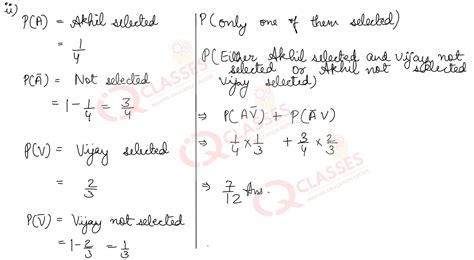 ii)
P(A) = Akhil selected
= 1/4
P(Ā) = Not selected
= 1 - 1/4 = 3/4
P(V) = Vijay selected
= 2/3
P(V̄) = Vijay not selected
= 1 - 2/3 = 1/3
P(only one of them selected)
P(Either Akhil selected and vijay not
selected or Akhil not selected
Vijay selected)
⇒ P(AV̄) + P(ĀV)
⇒ 1/4 × 1/3 + 3/4 × 2/3
⇒ 7/12 Ans.
IQ CLASSES
IQ CLASSES
IQ CLASSES